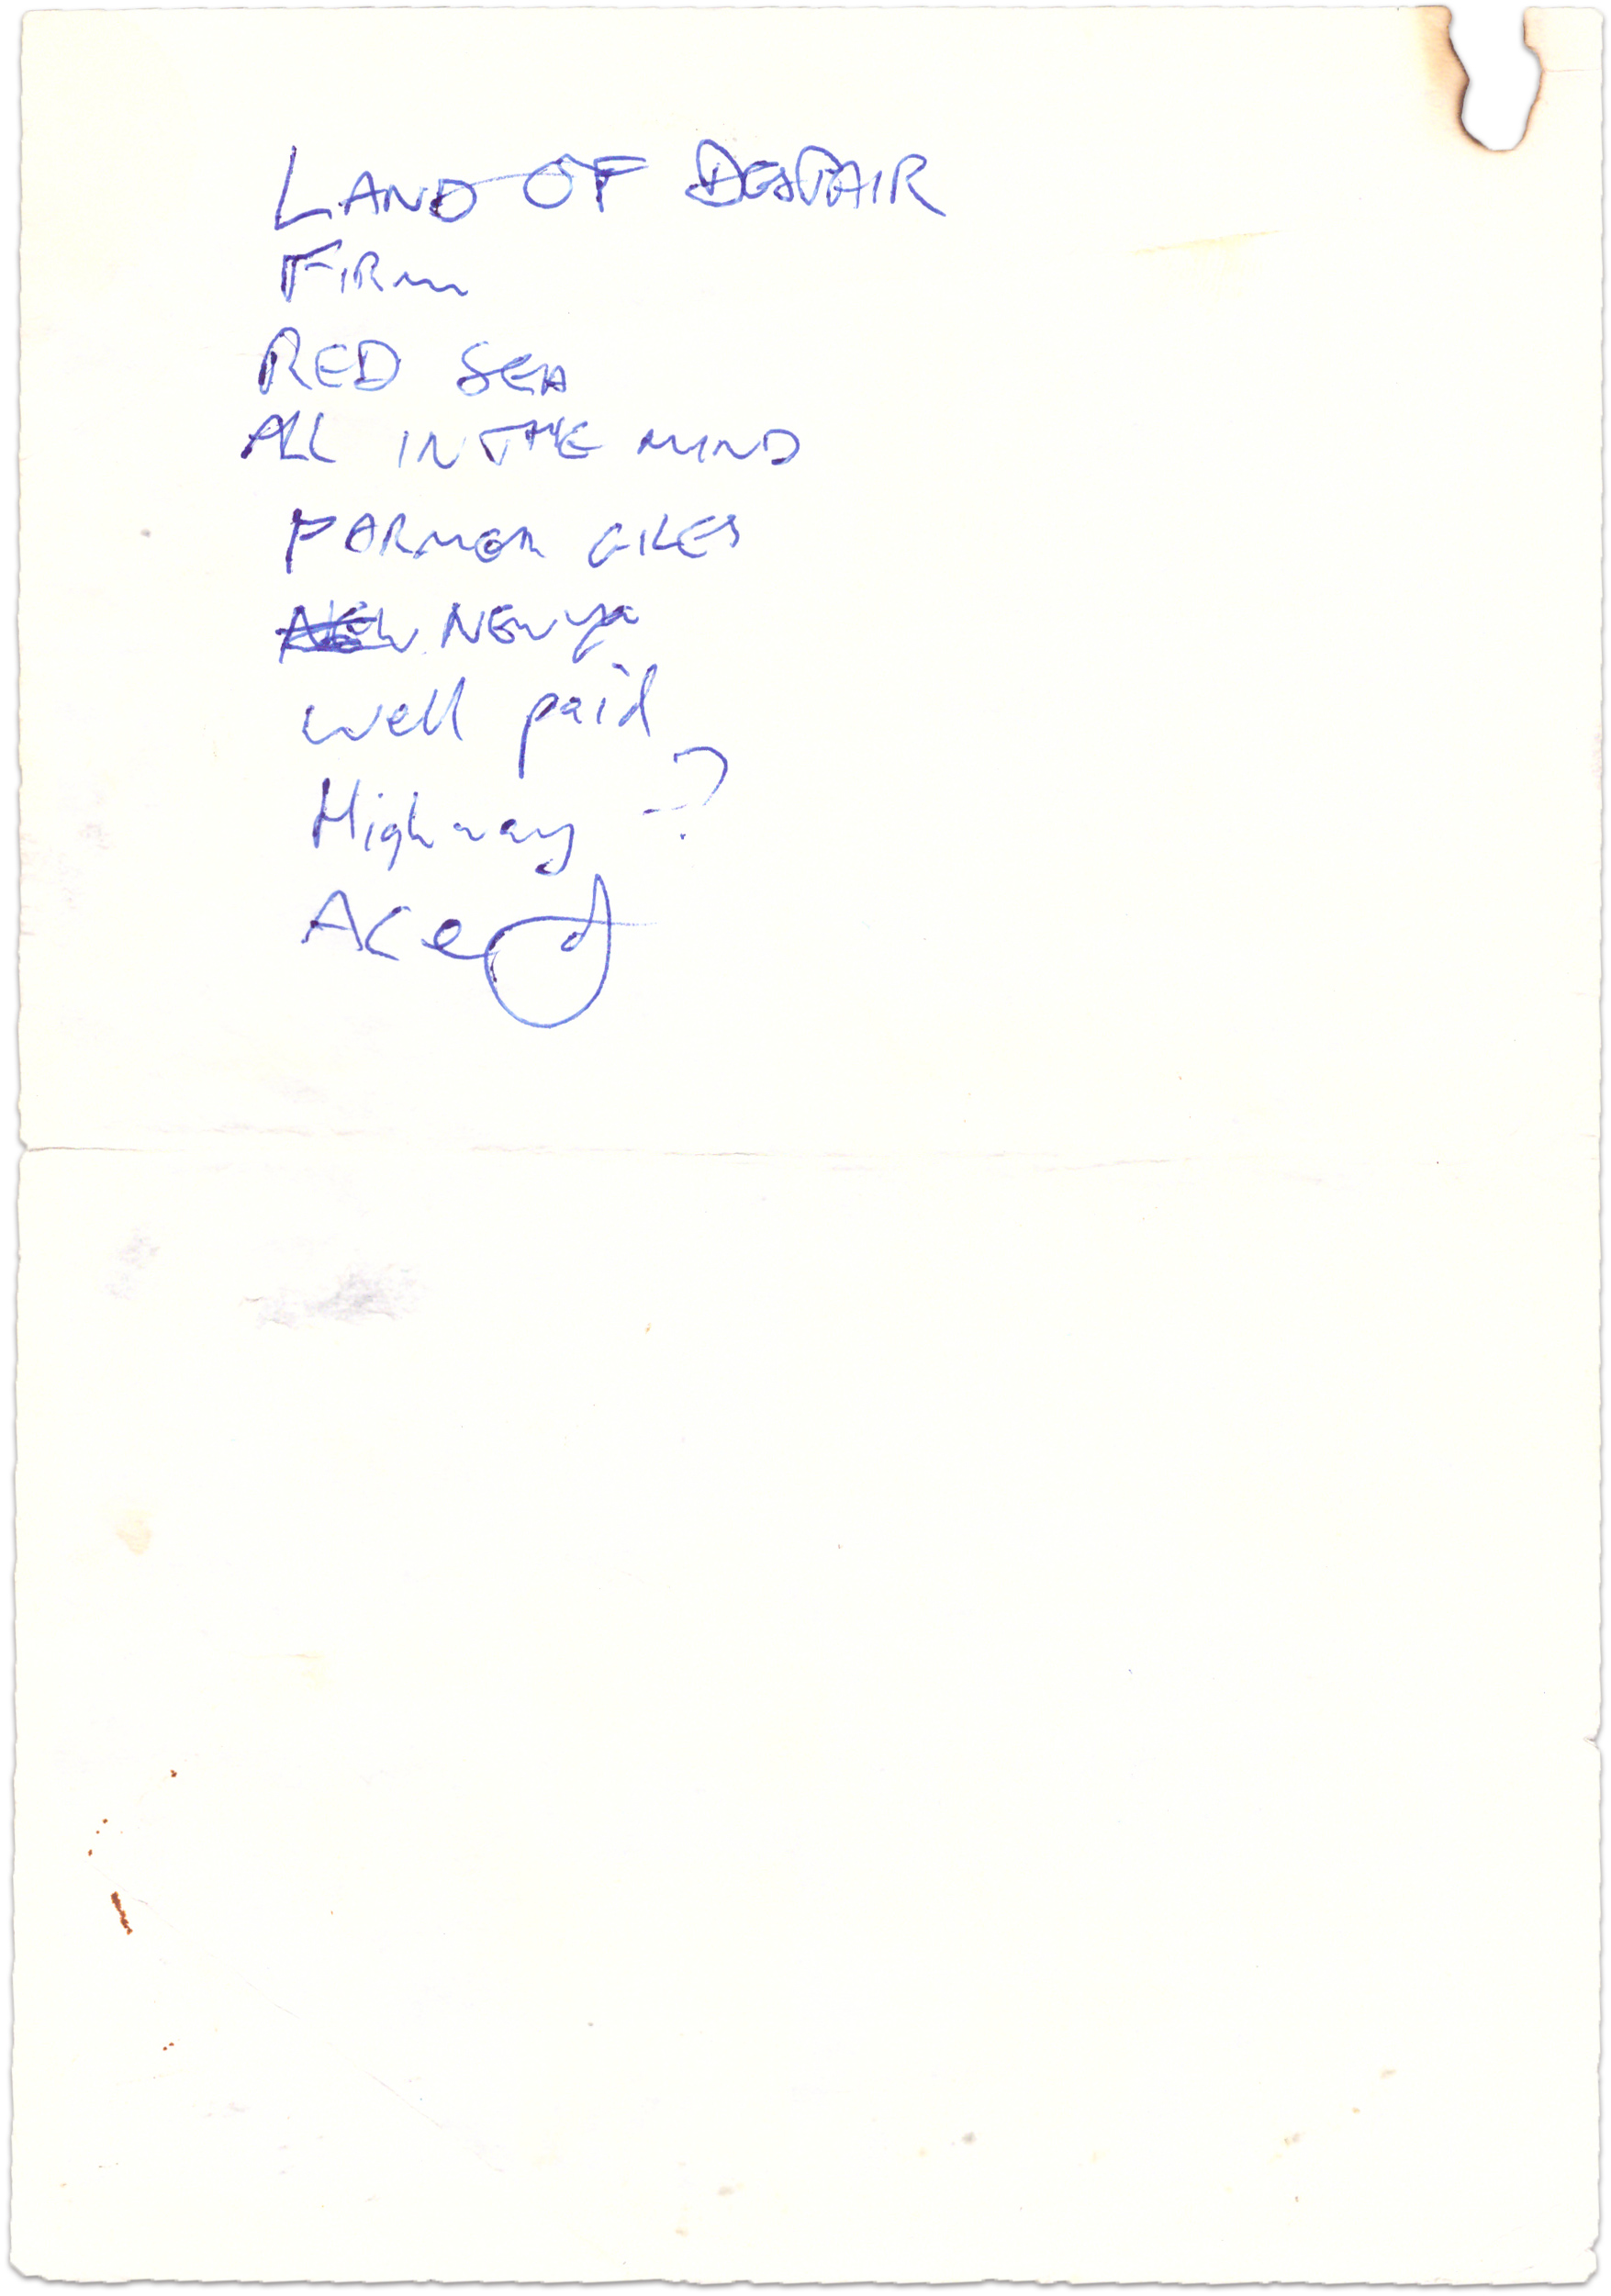 LAND OF DESPAIR
FIRM
RED SEA
ALL IN THE MIND
FARMER GILES
NEW NEWYR
Well paid
Highway ?
Ace